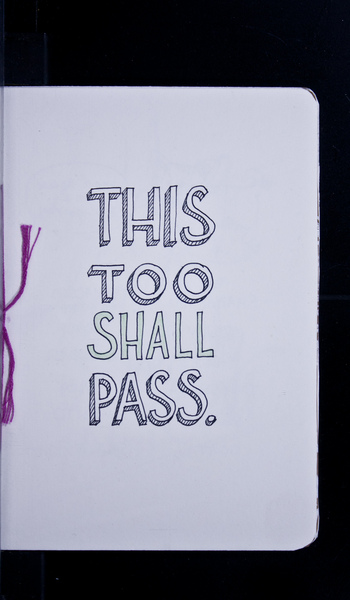 THIS
TOO
SHALL
PASS.